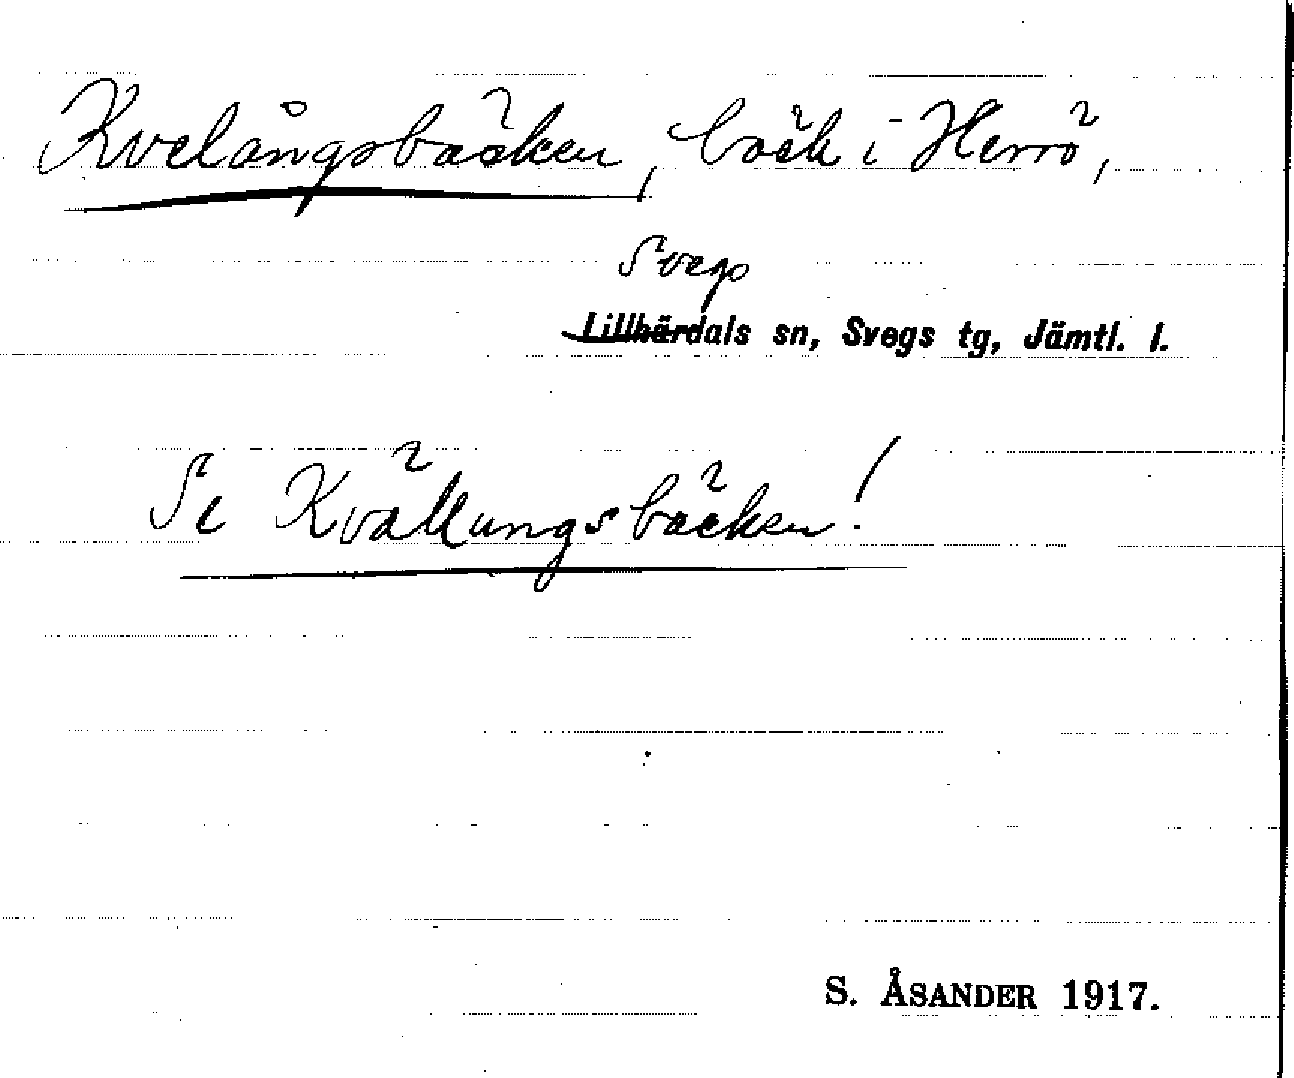 Kvelångsbäcken, bäck i Herrö,
Svegs
Lillhärdals sn, Svegs tg, Jämtl. l.
Se Kvällungsbäcken!
S. ÅSANDER 1917.